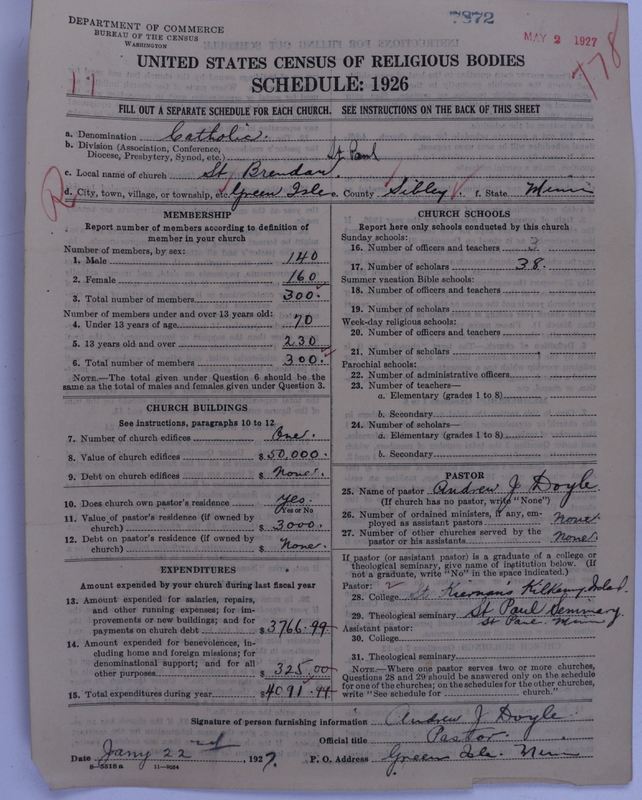 DEPARTMENT OF COMMERCE
BUREAU OF THE CENSUS
WASHINGTON
7872
MAY 2 1927
178
UNITED STATES CENSUS OF RELIGIOUS BODIES
SCHEDULE: 1926
11
FILL OUT A SEPARATE SCHEDULE FOR EACH CHURCH. SEE INSTRUCTIONS ON THE BACK OF THIS SHEET
a. Denomination Catholic.
b. Division (Association, Conference,
Diocese, Presbytery, Synod, etc.) St. Paul
c. Local name of church St. Brendan.
d. City, town, village, or township, etc. Green Isle e. County Sibley f. State Minn
MEMBERSHIP
Report number of members according to definition of
member in your church
Number of members, by sex:
1. Male 140
2. Female 160
3. Total number of members 300.
Number of members under and over 13 years old:
4. Under 13 years of age 70
5. 13 years old and over 230
6. Total number of members 300.
NOTE.—The total given under Question 6 should be the
same as the total of males and females given under Question 3.
CHURCH BUILDINGS
See instructions, paragraphs 10 to 12
7. Number of church edifices One.
8. Value of church edifices $50,000.
9. Debt on church edifices $ None.
10. Does church own pastor's residence Yes.
(Yes or No)
11. Value of pastor's residence (if owned by
church) $ 3000.
12. Debt on pastor's residence (if owned by
church) $ None.
EXPENDITURES
Amount expended by your church during last fiscal year
13. Amount expended for salaries, repairs,
and other running expenses; for im-
provements or new buildings; and for
payments on church debt $3766.99
14. Amount expended for benevolences, in-
cluding home and foreign missions; for
denominational support; and for all
other purposes $ 325.00
15. Total expenditures during year $4091.99
CHURCH SCHOOLS
Report here only schools conducted by this church
Sunday schools:
16. Number of officers and teachers 3
17. Number of scholars 38.
Summer vacation Bible schools:
18. Number of officers and teachers
19. Number of scholars
Week-day religious schools:
20. Number of officers and teachers
21. Number of scholars
Parochial schools:
22. Number of administrative officers
23. Number of teachers—
a. Elementary (grades 1 to 8)
b. Secondary
24. Number of scholars—
a. Elementary (grades 1 to 8)
b. Secondary
PASTOR
25. Name of pastor Andrew J Doyle.
(If church has no pastor, write "None")
26. Number of ordained ministers, if any, em-
ployed as assistant pastors None
27. Number of other churches served by the
pastor or his assistants None.
If pastor (or assistant pastor) is a graduate of a college or
theological seminary, give name of institution below. (If
not a graduate, write "No" in the space indicated.)
Pastor: 2
28. College St Kiernans Kilkenny
29. Theological seminary St Paul Seminary
St Paul. Minn
Assistant pastor:
30. College
31. Theological seminary
NOTE.—Where one pastor serves two or more churches,
Questions 28 and 29 should be answered only on the schedule
for one of the churches; on the schedules for the other churches,
write "See schedule for church."
Signature of person furnishing information Andrew J Doyle
Official title Pastor.
Date Jany 22nd 1927. P. O. Address Green Isle. Minn
8—5518a 11—9034